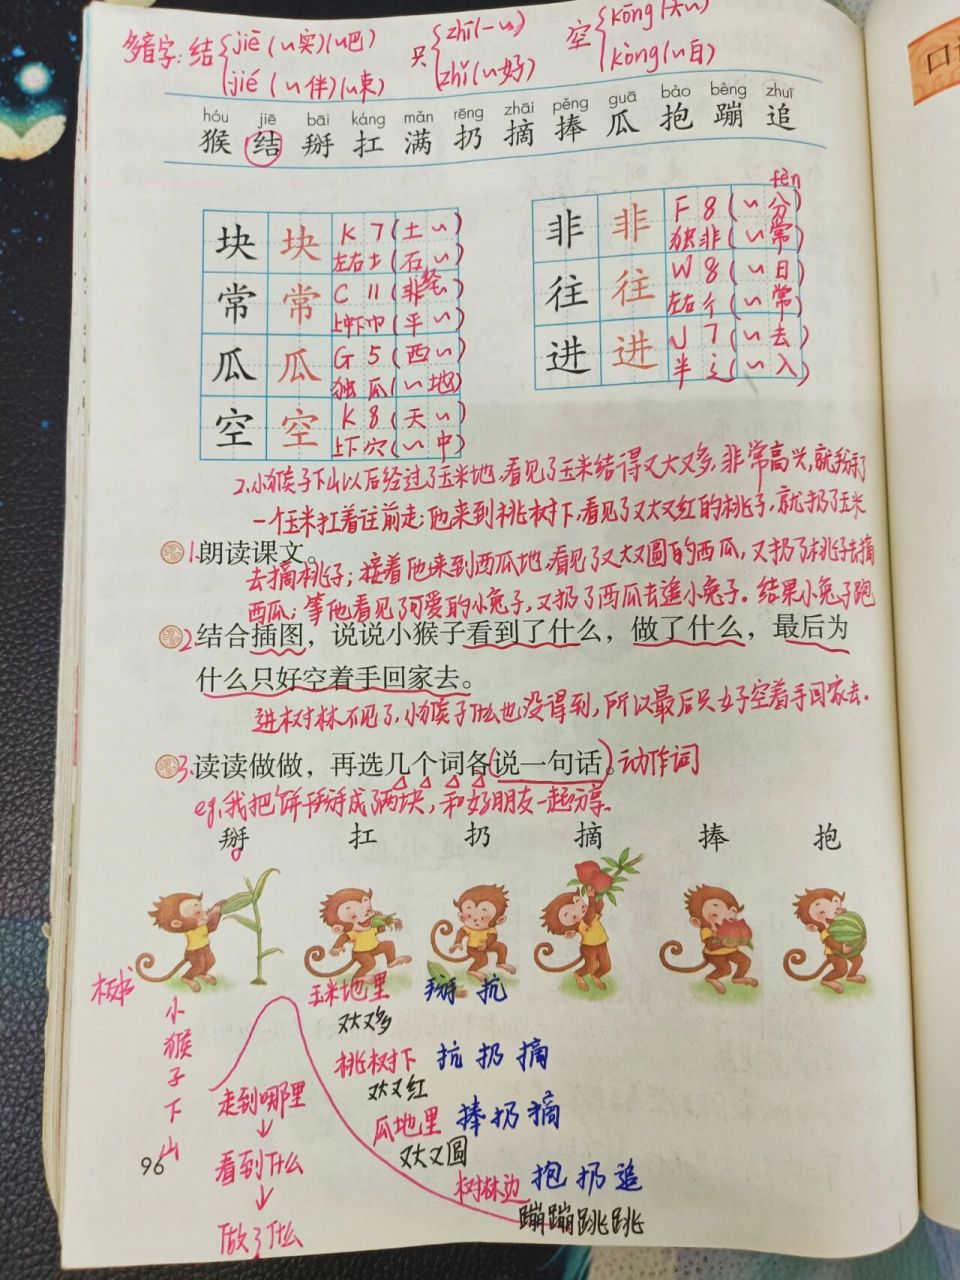 多音字：结 jiē（〃实）（〃巴） 只 zhī（一〃） 空 kōng（天〃）
jié（〃伴）（〃束） zhǐ（〃好） kòng（〃白）
口
hóu jiē bāi káng mǎn rēng zhāi pěng guā bào bèng zhuī
猴 结 掰 扛 满 扔 摘 捧 瓜 抱 蹦 追
块 块 K 7（土〃）
左右 土（石〃）
常 常 C 11（非〃）
上中下 巾（平〃）
瓜 瓜 G 5（西〃）
独 瓜（〃地）
空 空 K 8（天〃）
上下 穴（〃中）
fèn
非 非 F 8（〃分）
独 非（〃常）
往 往 W 8（〃日）
左右 彳（〃常）
进 进 J 7（〃去）
半 辶（〃入）
2.小猴子下山以后经过了玉米地，看见了玉米结得又大又多，非常高兴，就掰了
一个玉米扛着往前走；他来到桃树下，看见了又大又红的桃子，就扔了玉米
1.朗读课文。
去摘桃子；接着他来到西瓜地，看见了又大又圆的西瓜，又扔了桃子去摘
西瓜；等他看见了可爱的小兔子，又扔了西瓜去追小兔子。结果小兔子跑
2.结合插图，说说小猴子看到了什么，做了什么，最后为
什么只好空着手回家去。
进树林不见了，小猴子什么也没得到，所以最后只好空着手回家去。
3.读读做做，再选几个词各说一句话。动作词
eg.我把饼干掰成了两块，和好朋友一起分享。
掰 扛 扔 摘 捧 抱
板书
小猴子下山
玉米地里 掰 抗
又大又多
桃树下 抗 扔 摘
又大又红
走到哪里
瓜地里 捧 扔 摘
又大又圆
看到什么
树林边 抱 扔 追
蹦蹦跳跳
做了什么
96